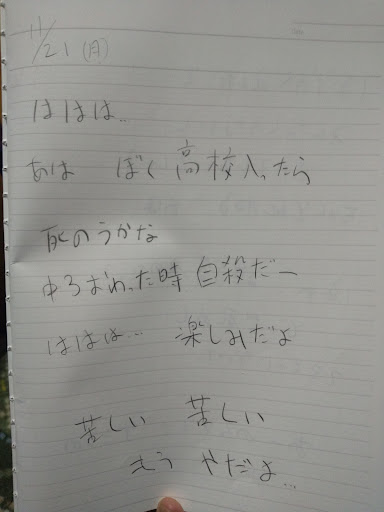 11/21(月)
ははは…
あは ぼく 高校入ったら
死のうかな
中3おわった時 自殺だー
ははは… 楽しみだよ
苦しい 苦しい
もう やだよ…